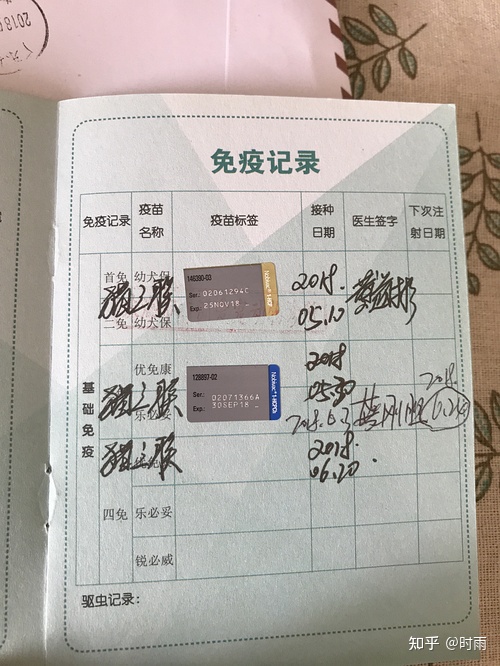 2018.
免疫记录
免疫记录 疫苗名称 疫苗标签 接种日期 医生签字 下次注射日期
基础免疫
首免 幼犬保
猫三联
146380-03
Ser.: 02061294C
Exp.: 25NOV18
Nobivac
2018.
05.10
二免 幼犬保
优免康
猫三联
乐必妥
128897-02
Ser.: 02071366A
30SEP18
Exp.:
Nobivac
2018
05.30
2018.6.3
2018.
猫三联
2018.
06.20.
四免 乐必妥
锐必威
驱虫记录：
知乎 @时雨